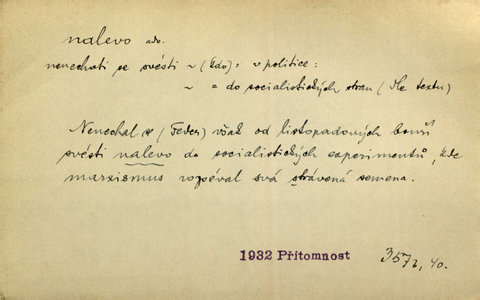 nalevo adv.
nenechati se svésti ~ (kdo) = v politice:
~ = do socialistických stran (dle textu)
Nenechal se (Feder) však od listopadových bouří
svésti nalevo do socialistických experimentů, kde
marxismus rozséval svá strávená semena.
1932 Přítomnost
357, 40.